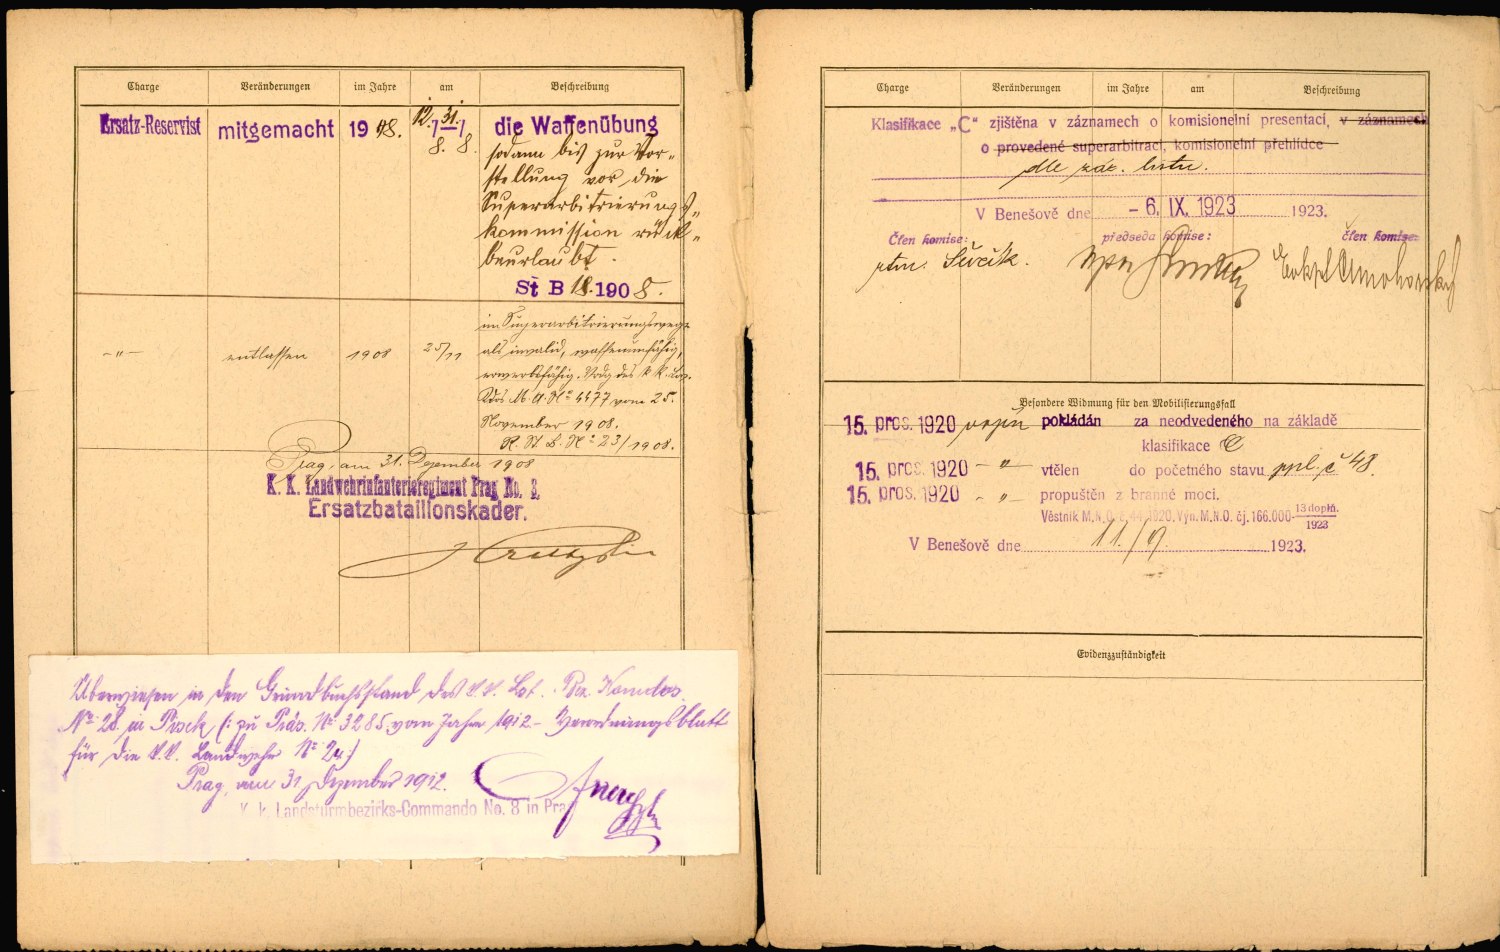 Charge Veränderungen im Jahre am Beschreibung
Ersatz-Reservist mitgemacht 1908. 12. 31. die Waffenübung
7 7
8. 8.
sodann bis zur Vor-
stellung vor die
Superarbitrierungs-
kommission rück-
beurlaubt.
St B 18. 1908.
im Superarbitrierungswege
-"- entlassen 1908 25/11 als invalid, waffenunfähig,
erwerbsfähig. Vdg des k. k. Ldw.
Kdos M. A. No 4477 vom 25.
November 1908.
R. St. B. No 23/1908.
Prag, am 31. Dezember 1908
K. K. Landwehrinfanterieregiment Prag No. 8,
Ersatzbataillonskader.
Überwiesen in den Grundbuchsstand des k. k. Lst. Bez. Komdos
No 28 in Pisek (: zu Präs. No 3285 vom Jahre 1912 - Verordnungsblatt
für die k. k. Landwehr No 24.)
Prag, am 31 Dezember 1912.
K. k. Landsturmbezirks-Commando No. 8 in Prag
Charge Veränderungen im Jahre am Beschreibung
Klasifikace „C“ zjištěna v záznamech o komisionelní presentaci, v záznamech
o provedené superarbitraci, komisionelní přehlídce
dle zác. listu.
V Benešově dne - 6. IX. 1923 1923.
Člen komise: předseda komise: člen komise:
Ševčík.
Besondere Widmung für den Mobilisierungsfall
15. pros. 1920 vojín pokládán za neodvedeného na základě
klasifikace C
15. pros. 1920 -"- vtělen do početného stavu ppl. č 48.
15. pros. 1920 -"- propuštěn z branné moci.
Věstník M.N.O. č. 44/1920, Výn. M.N.O. čj. 166.000-13 dopln.
1923
V Benešově dne 11./9. 1923.
Evidenzzuständigkeit